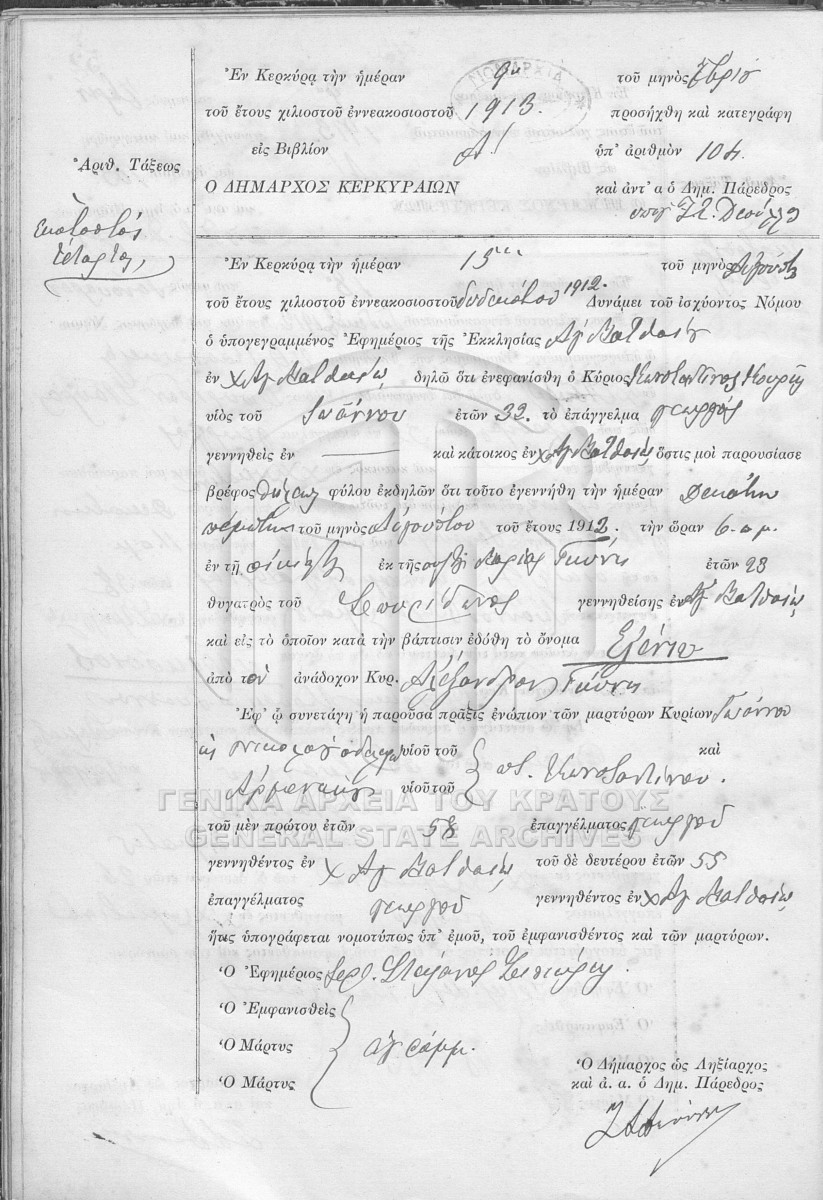 Ἐν Κερκύρᾳ τὴν ἡμέραν 9η τοῦ μηνὸς
ΝΟΜΑΡΧΙΑ
τοῦ ἔτους χιλιοστοῦ ἐννεακοσιοστοῦ 1913. προσήχθη καὶ κατεγράφη
εἰς Βιβλίον Α! ὑπ' ἀριθμὸν 104.
Ἀριθ. Τάξεως
Ο ΔΗΜΑΡΧΟΣ ΚΕΡΚΥΡΑΙΩΝ καὶ ἀντ' α ὁ Δημ. Πάρεδρος
Ἑκατοστὸς
τέταρτος
Ἐν Κερκύρᾳ τὴν ἡμέραν 15 τοῦ μηνὸς Αὐγούστου
τοῦ ἔτους χιλιοστοῦ ἐννεακοσιοστοῦ δωδεκάτου 1912. Δυνάμει τοῦ ἰσχύοντος Νόμου
ὁ ὑπογεγραμμένος Ἐφημέριος τῆς Ἐκκλησίας Ἁγ Ματθαίου
ἐν χ Ἁγ Ματθαίῳ δηλῶ ὅτι ἐνεφανίσθη ὁ Κύριος Κωνσταντῖνος
υἱὸς τοῦ Ἰωάννου ἐτῶν 32. τὸ ἐπάγγελμα γεωργός
γεννηθεὶς ἐν — καὶ κάτοικος ἐν χ Ἁγ Ματθαίῳ ὅστις μοὶ παρουσίασε
βρέφος θήλεος φύλου ἐκδηλῶν ὅτι τοῦτο ἐγεννήθη τὴν ἡμέραν Δεκάτην
πέμπτην τοῦ μηνὸς Αὐγούστου τοῦ ἔτους 1912. τὴν ὥραν 6 π μ.
ἐν τῇ οἰκίᾳ ἐκ τῆς συζύγ Μαρίας Γκίνη ἐτῶν 28
θυγατρὸς τοῦ Σπυρίδωνος γεννηθείσης ἐν Ἁγ Ματθαίῳ
καὶ εἰς τὸ ὁποῖον κατὰ τὴν βάπτισιν ἐδόθη τὸ ὄνομα Ἑλένη
ἀπὸ τὸν ἀνάδοχον Κυρ. Ἀλέξανδρον Γκίνη
Ἐφ' ᾧ συνετάγη ἡ παροῦσα πρᾶξις ἐνώπιον τῶν μαρτύρων Κυρίων Ἰωάννου
υἱοῦ τοῦ καὶ
υἱοῦ τοῦ Κωνσταντίνου.
ΓΕΝΙΚΑ ΑΡΧΕΙΑ ΤΟΥ ΚΡΑΤΟΥΣ
τοῦ μὲν πρώτου ἐτῶν 58 ἐπαγγέλματος γεωργοῦ
GENERAL STATE ARCHIVES
γεννηθέντος ἐν χ Ἁγ Ματθαίῳ τοῦ δὲ δευτέρου ἐτῶν 55
ἐπαγγέλματος γεωργοῦ γεννηθέντος ἐν χ Ἁγ Ματθαίῳ
ἥτις ὑπογράφεται νομοτύπως ὑπ' ἐμοῦ, τοῦ ἐμφανισθέντος καὶ τῶν μαρτύρων.
Ὁ Ἐφημέριος
Ὁ Ἐμφανισθεὶς
Ὁ Μάρτυς ἀγράμμ.
Ὁ Μάρτυς
Ὁ Δήμαρχος ὡς Ληξίαρχος
καὶ ἀ. α. ὁ Δημ. Πάρεδρος